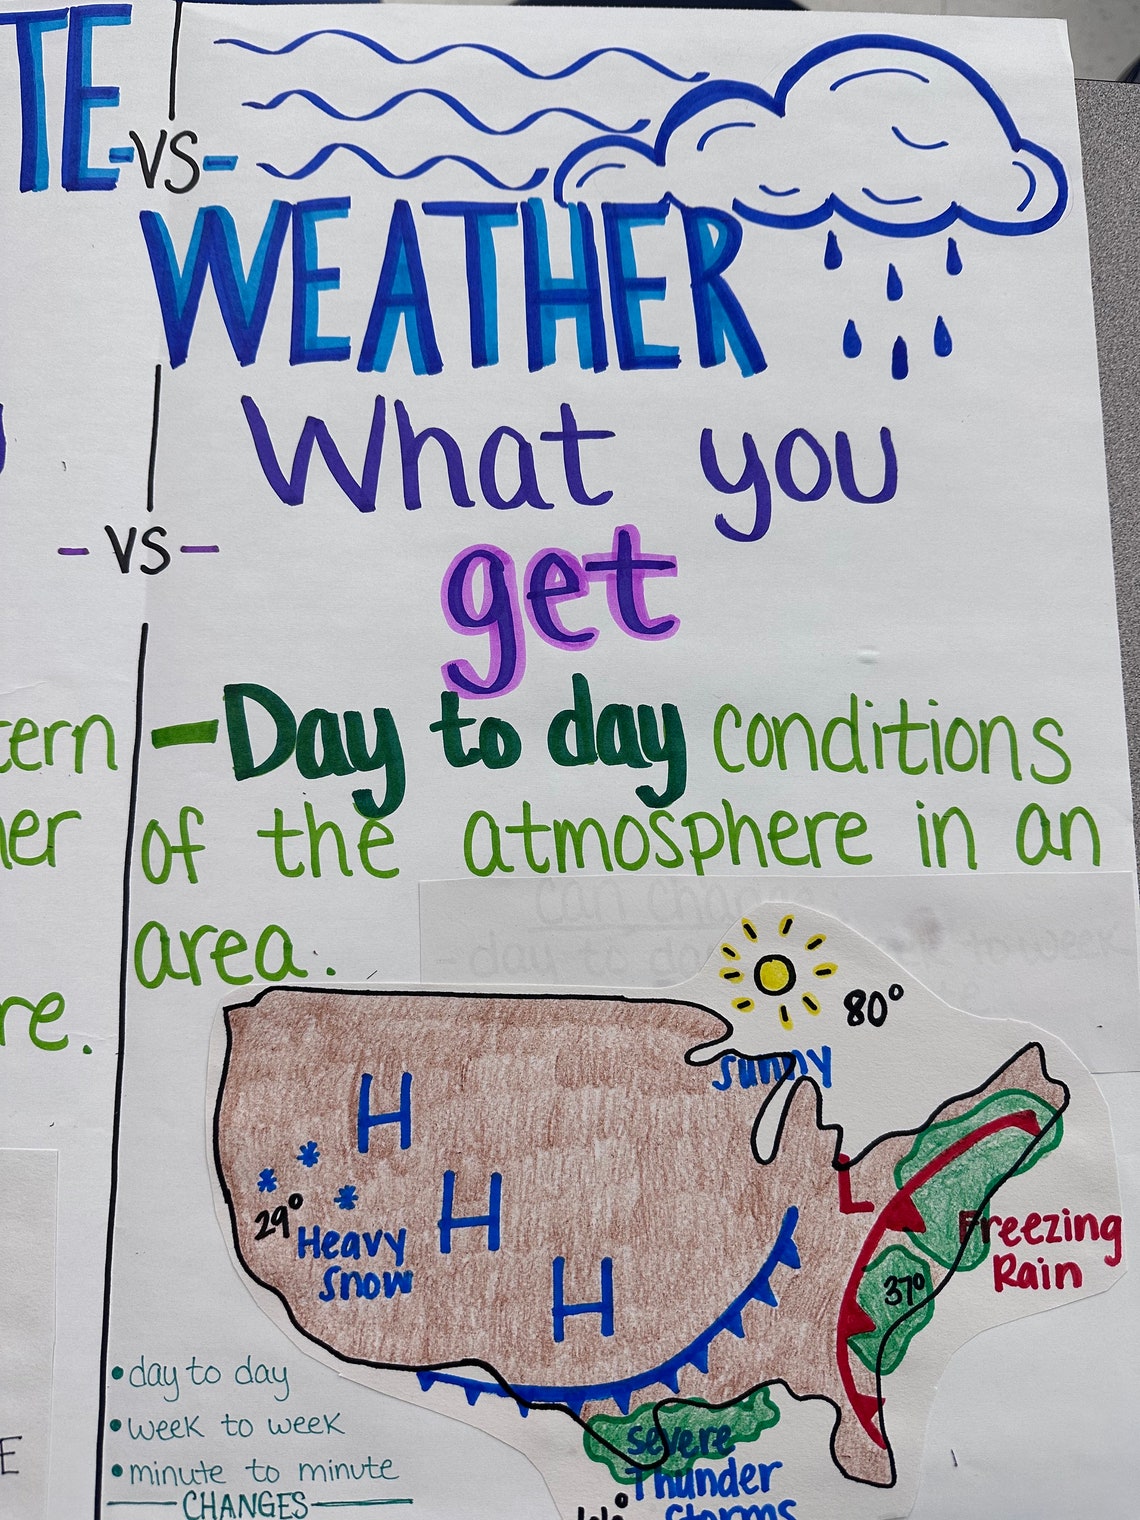 TE -VS-
WEATHER
What you
-VS-
get
tern
-Day to day conditions
her
of the atmosphere in an
area.
re.
can change
-day to day to week
80°
Sunny
H
H
H
29°
Heavy
Snow
L
Freezing
Rain
37°
Severe
Thunder
Storms
• day to day
• week to week
• minute to minute
CHANGES
E